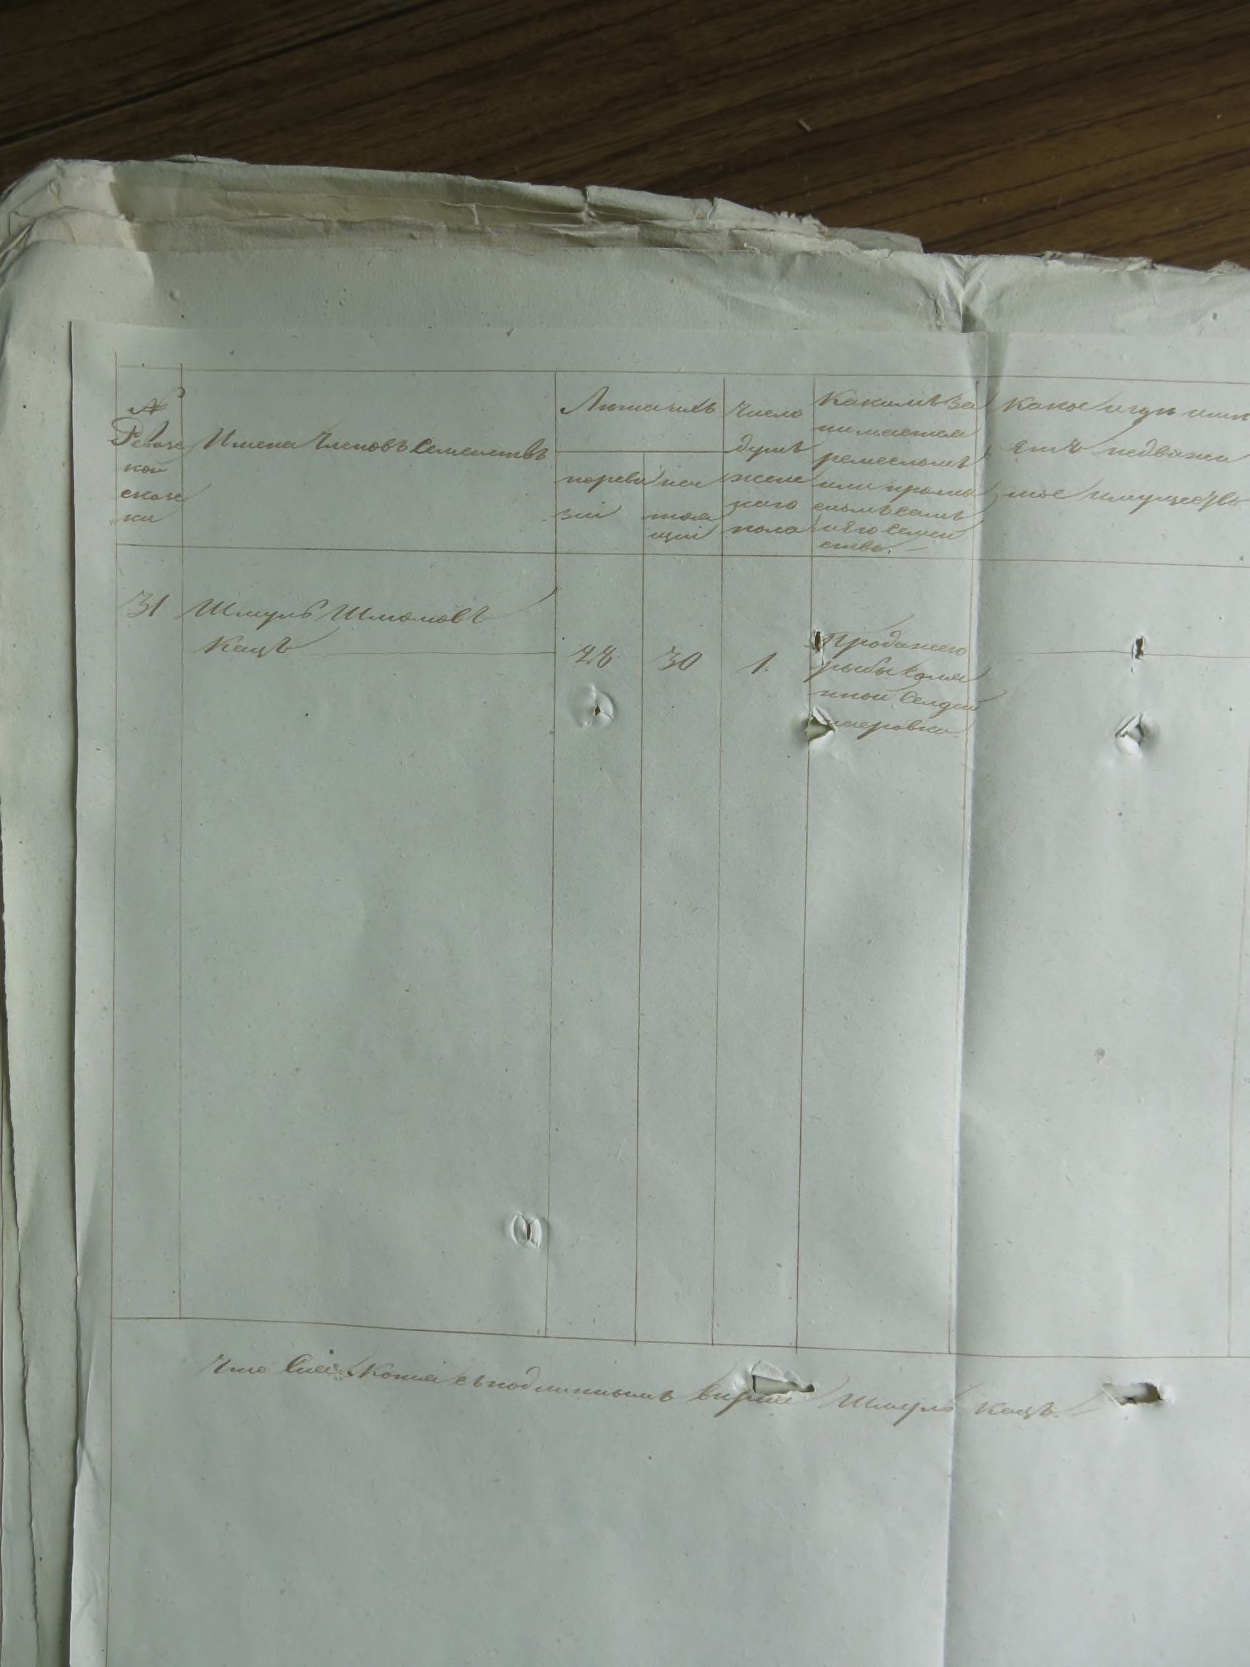 №
Ревизс
кой
сказс
ки
Имена Членовъ Семействъ
Лета ихъ
по реви
зіи
нас
тоя
щіи
Число
душъ
женс
каго
пола
Какимъ за
нимается
ремесломъ
или промы
сломъ самъ
и его семей
ство.
Какое и гдѣ име
етъ недвижи
мое имущество
31
Шмуль Шлиомовъ
Кацъ
28
30
1.
Продажею
рыбы
Селдей
Что Сія Копія съ подлиннымъ верна Шмуль Кацъ.